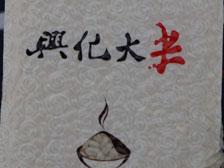 興化大米